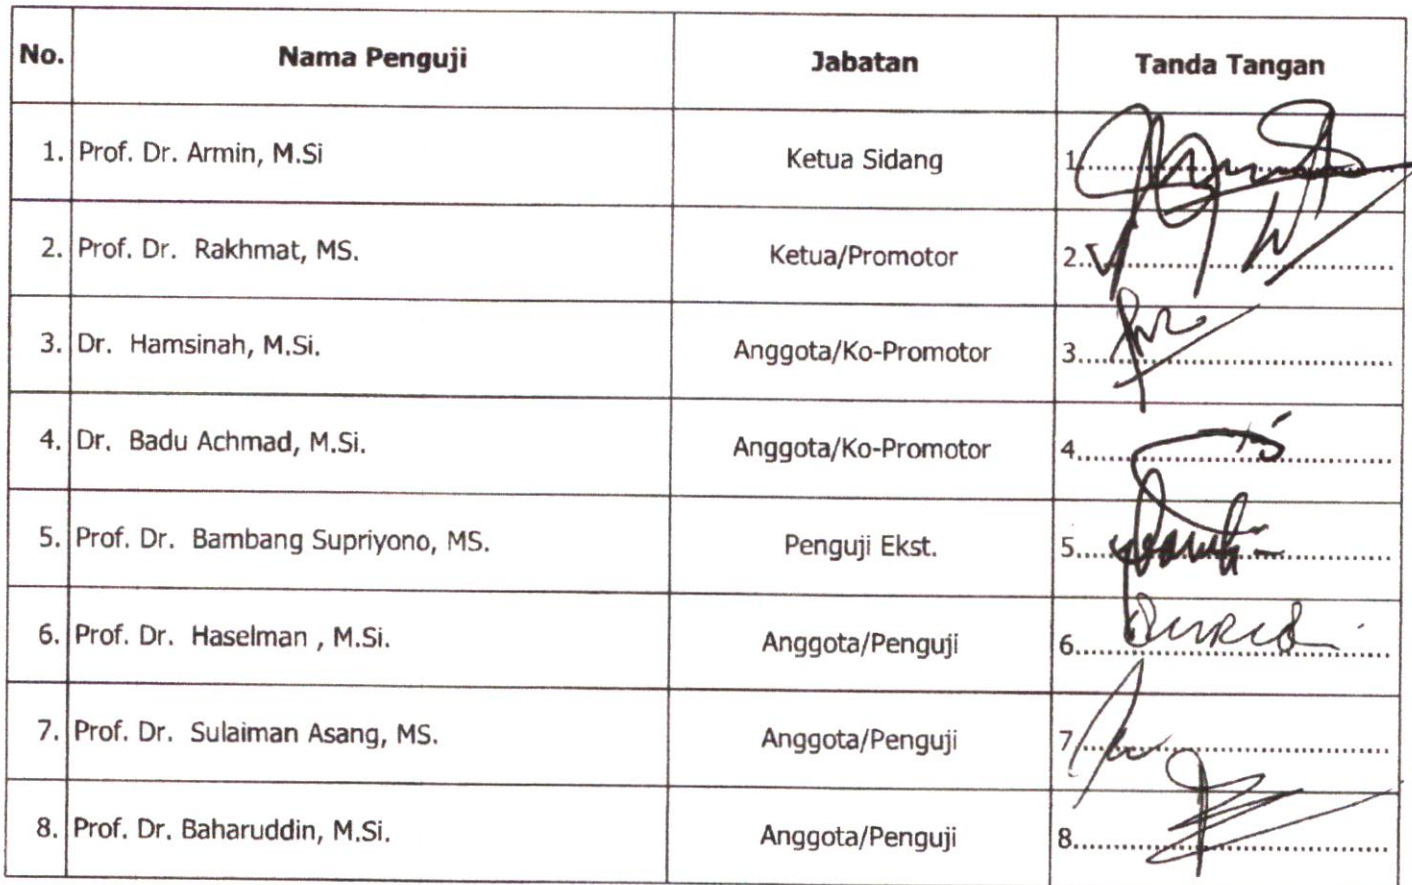 No. Nama Penguji Jabatan Tanda Tangan
1. Prof. Dr. Armin, M.Si Ketua Sidang 1
2. Prof. Dr. Rakhmat, MS. Ketua/Promotor 2
3. Dr. Hamsinah, M.Si. Anggota/Ko-Promotor 3
4. Dr. Badu Achmad, M.Si. Anggota/Ko-Promotor 4
5. Prof. Dr. Bambang Supriyono, MS. Penguji Ekst. 5
6. Prof. Dr. Haselman , M.Si. Anggota/Penguji 6
7. Prof. Dr. Sulaiman Asang, MS. Anggota/Penguji 7
8. Prof. Dr. Baharuddin, M.Si. Anggota/Penguji 8